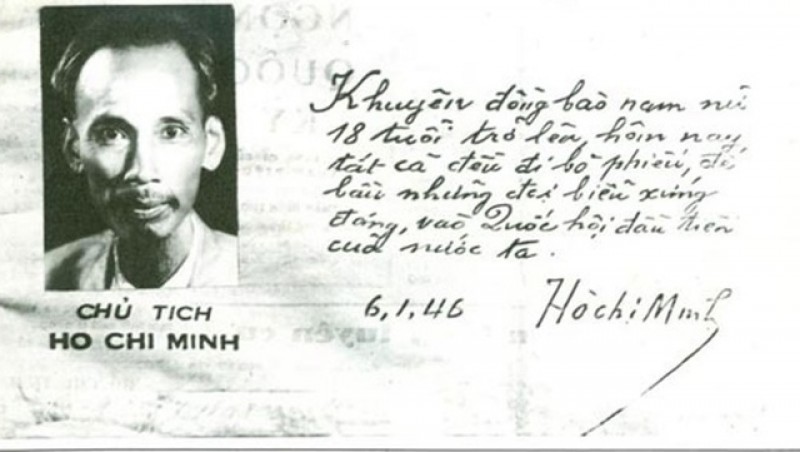 Khuyên đồng bào nam nữ
18 tuổi trở lên, hôm nay,
tất cả đều đi bỏ phiếu, để
bầu những đại biểu xứng
đáng, vào Quốc hội đầu tiên
của nước ta.
6.1.46 Hồ Chí Minh
CHỦ TỊCH
HO CHI MINH